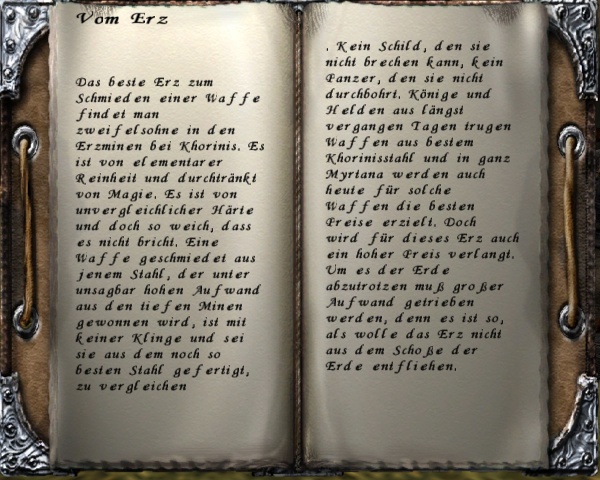 Vom Erz
Das beste Erz zum
Schmieden einer Waffe
findet man
zweifelsohne in den
Erzminen bei Khorinis. Es
ist von elementarer
Reinheit und durchtränkt
von Magie. Es ist von
unvergleichlicher Härte
und doch so weich, dass
es nicht bricht. Eine
Waffe geschmiedet aus
jenem Stahl, der unter
unsagbar hohen Aufwand
aus den tiefen Minen
gewonnen wird, ist mit
keiner Klinge und sei
sie aus dem noch so
besten Stahl gefertigt,
zu vergleichen
. Kein Schild, den sie
nicht brechen kann, kein
Panzer, den sie nicht
durchbohrt. Könige und
Helden aus längst
vergangen Tagen trugen
Waffen aus bestem
Khorinisstahl und in ganz
Myrtana werden auch
heute für solche
Waffen die besten
Preise erzielt. Doch
wird für dieses Erz auch
ein hoher Preis verlangt.
Um es der Erde
abzutrotzen muß großer
Aufwand getrieben
werden, denn es ist so,
als wolle das Erz nicht
aus dem Schoße der
Erde entfliehen.